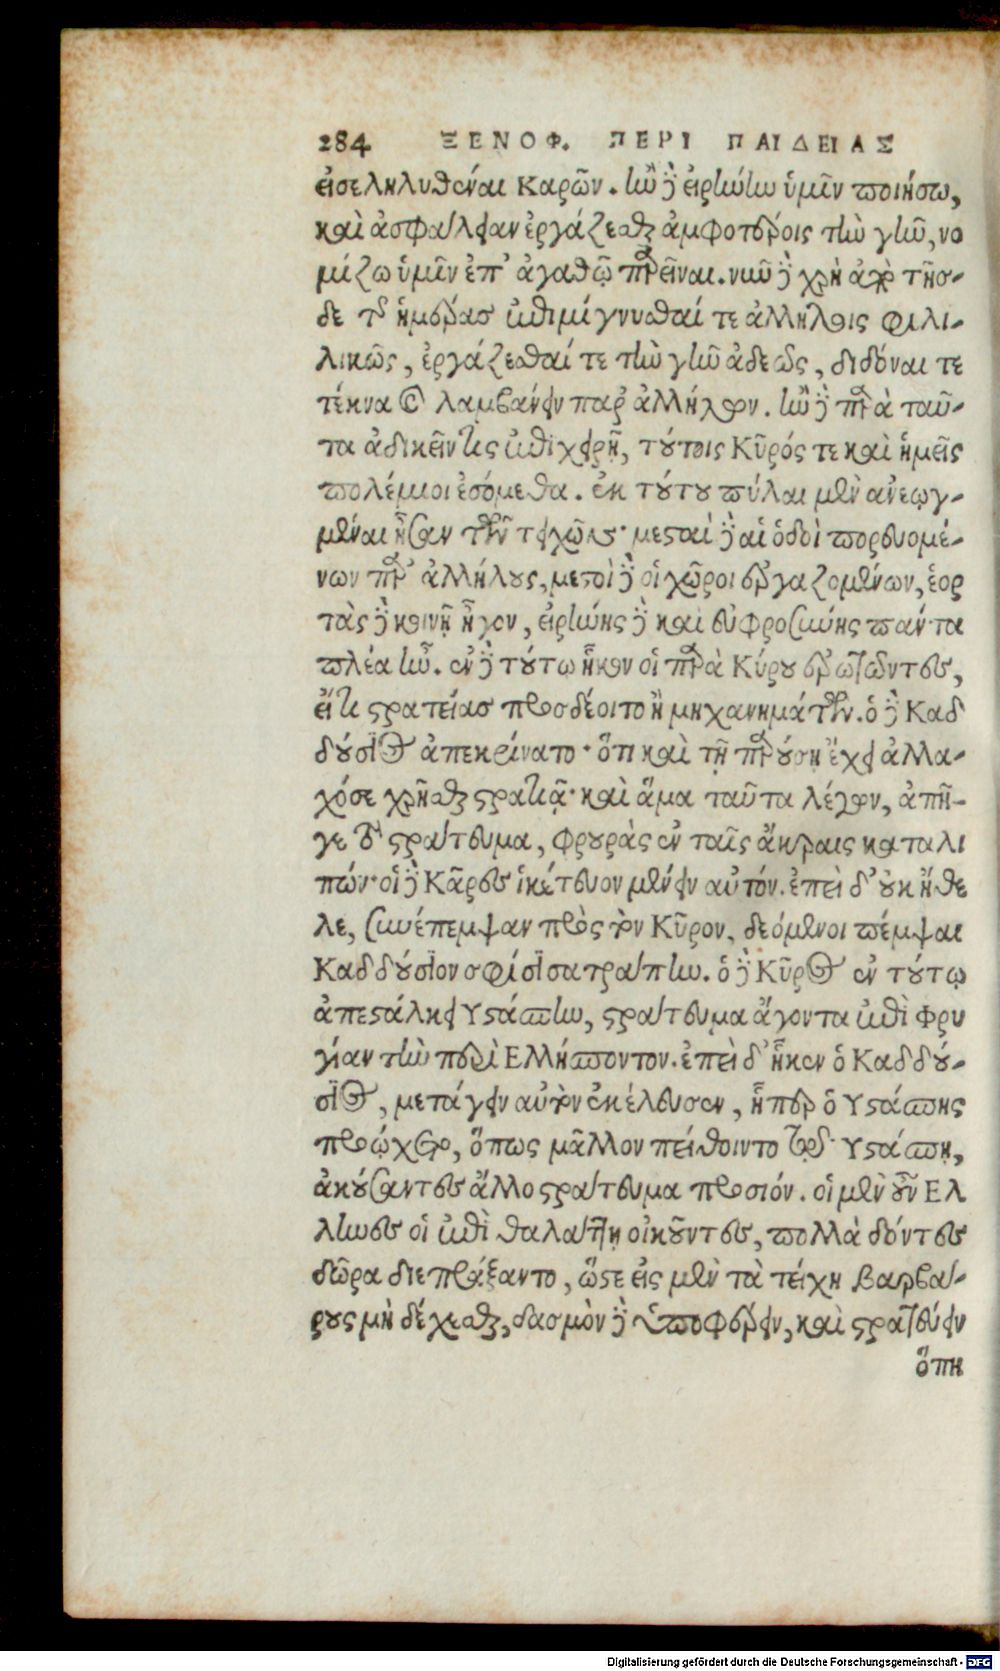 284 ΞΕΝΟΦ. ΠΕΡΙ ΠΑΙΔΕΙΑΣ
εἰσεληλυθέναι Καρῶν. ἢν δὲ εἰρήνην ὑμῖν ποιήσω,
καὶ ἀσφάλειαν ἐργάζεσθαι ἀμφοτέροις τὴν γῆν, νο
μίζω ὑμῖν ἐπ' ἀγαθῷ παρεῖναι. νῦν δὲ χρὴ ἀπὸ τῆσ-
δε τῆς ἡμέρας ἐπιμίγνυσθαί τε ἀλλήλοις φιλι-
λικῶς, ἐργάζεσθαί τε τὴν γῆν ἀδεῶς, διδόναι τε
τέκνα καὶ λαμβάνειν παρ' ἀλλήλων. ἢν δὲ παρὰ ταῦ-
τα ἀδικεῖν τις ἐπιχειρῇ, τούτοις Κῦρός τε καὶ ἡμεῖς
πολέμιοι ἐσόμεθα. ἐκ τούτου πύλαι μὲν ἀνεῳγ-
μέναι ἦσαν τῶν τειχῶν· μεσταὶ δὲ αἱ ὁδοὶ πορευομέ-
νων παρ' ἀλλήλους, μεστοὶ δὲ οἱ χῶροι ἐργαζομένων, ἑορ
τὰς δὲ κοινῇ ἦγον, εἰρήνης δὲ καὶ εὐφροσύνης πάντα
πλέα ἦν. ἐν δὲ τούτῳ ἧκον οἱ παρὰ Κύρου ἐρωτῶντες,
εἴ τι στρατείας προσδέοιτο ἢ μηχανημάτων. ὁ δὲ Καδ
δούσιος ἀπεκρίνατο· ὅτι καὶ τῇ παρούσῃ ἔχει ἀλλα-
χόσε χρῆσθαι στρατιᾷ· καὶ ἅμα ταῦτα λέγων, ἀπῆ-
γε τὸ στράτευμα, φρουρὰς ἐν ταῖς ἄκραις καταλι
πών· οἱ δὲ Κᾶρες ἱκέτευον μένειν αὐτόν. ἐπεὶ δ' οὐκ ἤθε
λε, συνέπεμψαν πρὸς τὸν Κῦρον, δεόμενοι πέμψαι
Καδδούσιον σφίσι σατράπην. ὁ δὲ Κῦρος ἐν τούτῳ
ἀπεστάλκει Υστάσπην, στράτευμα ἄγοντα ἐπὶ Φρυ
γίαν τὴν περὶ Ελλήσποντον. ἐπεὶ δ' ἧκεν ὁ Καδδού-
σιος, μετάγειν αὐτὸν ἐκέλευσεν, ᾗπερ ὁ Υστάσπης
προῴχετο, ὅπως μᾶλλον πείθοιντο τῷ Υστάσπῃ,
ἀκούσαντες ἄλλο στράτευμα προσιόν. οἱ μὲν οὖν Ελ
ληνες οἱ ἐπὶ θαλάττῃ οἰκοῦντες, πολλὰ δόντες
δῶρα διεπράξαντο, ὥστε εἰς μὲν τὰ τείχη βαρβά-
ρους μὴ δέχεσθαι, δασμὸν δὲ ὑποφέρειν, καὶ στρατεύειν
ὅπη
Digitalisierung gefördert durch die Deutsche Forschungsgemeinschaft - DFG